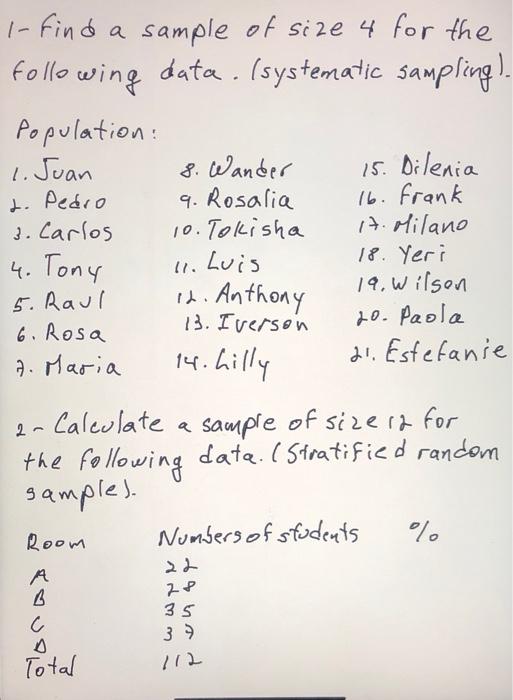 1- Find a sample of size 4 for the
following data. (systematic sampling).
Population:
1. Juan
2. Pedro
3. Carlos
4. Tony
5. Raul
6. Rosa
7. Maria
8. Wander
9. Rosalia
10. Tokisha
11. Luis
12. Anthony
13. Iverson
14. Lilly
15. Dilenia
16. Frank
17. Milano
18. Yeri
19. Wilson
20. Paola
21. Estefanie
2- Calculate a sample of size 12 for
the following data. (Stratified random
sample).
Room Numbers of students %
A 22
B 28
C 35
D 37
Total 112